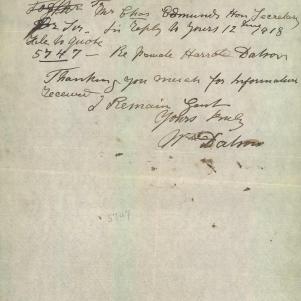 Mr Chas Edmunds Hon Secretary
Dr Sir. In Reply to Yours 12 1918
File to quote
5747 — Re Private Harrold Dalson
Thanking you much for Information
Received
I Remain Gent
Yours truly
Wm Dalson
5747